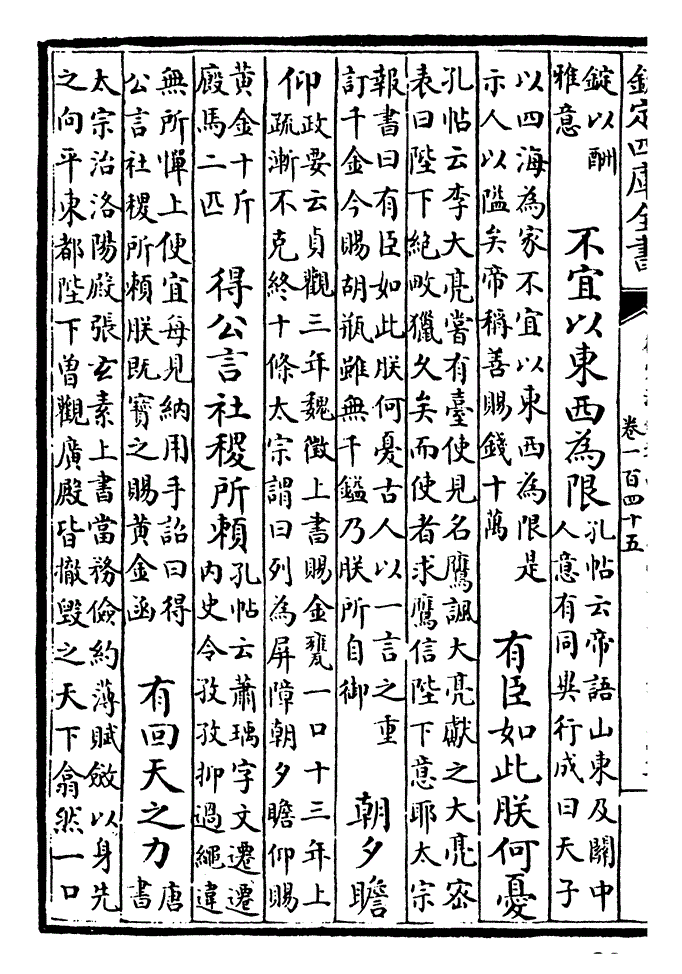 欽定四庫全書
卷一百四十五
錠以酬
雅意
不宜以東西為限
孔帖云帝語山東及關中
人意有同異行成曰天子
以四海為家不宜以東西為限是
示人以隘矣帝稱善賜錢十萬
有臣如此朕何憂
孔帖云李大亮嘗有臺使見名鷹諷大亮獻之大亮宻
表曰陛下絶畋獵久矣而使者求鷹信陛下意耶太宗
報書曰有臣如此朕何憂古人以一言之重
訂千金今賜胡瓶雖無千鎰乃朕所自御
朝夕瞻
仰
政要云貞觀三年魏徵上書賜金甕一口十三年上
疏漸不克終十條太宗謂曰列為屏障朝夕瞻仰賜
黄金十斤
廏馬二匹
得公言社稷所賴
孔帖云蕭瑀字文遷遷
内史令孜孜抑過繩違
無所憚上使宜每見納用手詔曰得
公言社稷所賴朕既寶之賜黄金函
有回天之力
唐
書
太宗治洛陽殿張玄素上書當務儉約薄賦斂以身先
之向平東都陛下曽觀廣殿皆撤毁之天下翕然一口